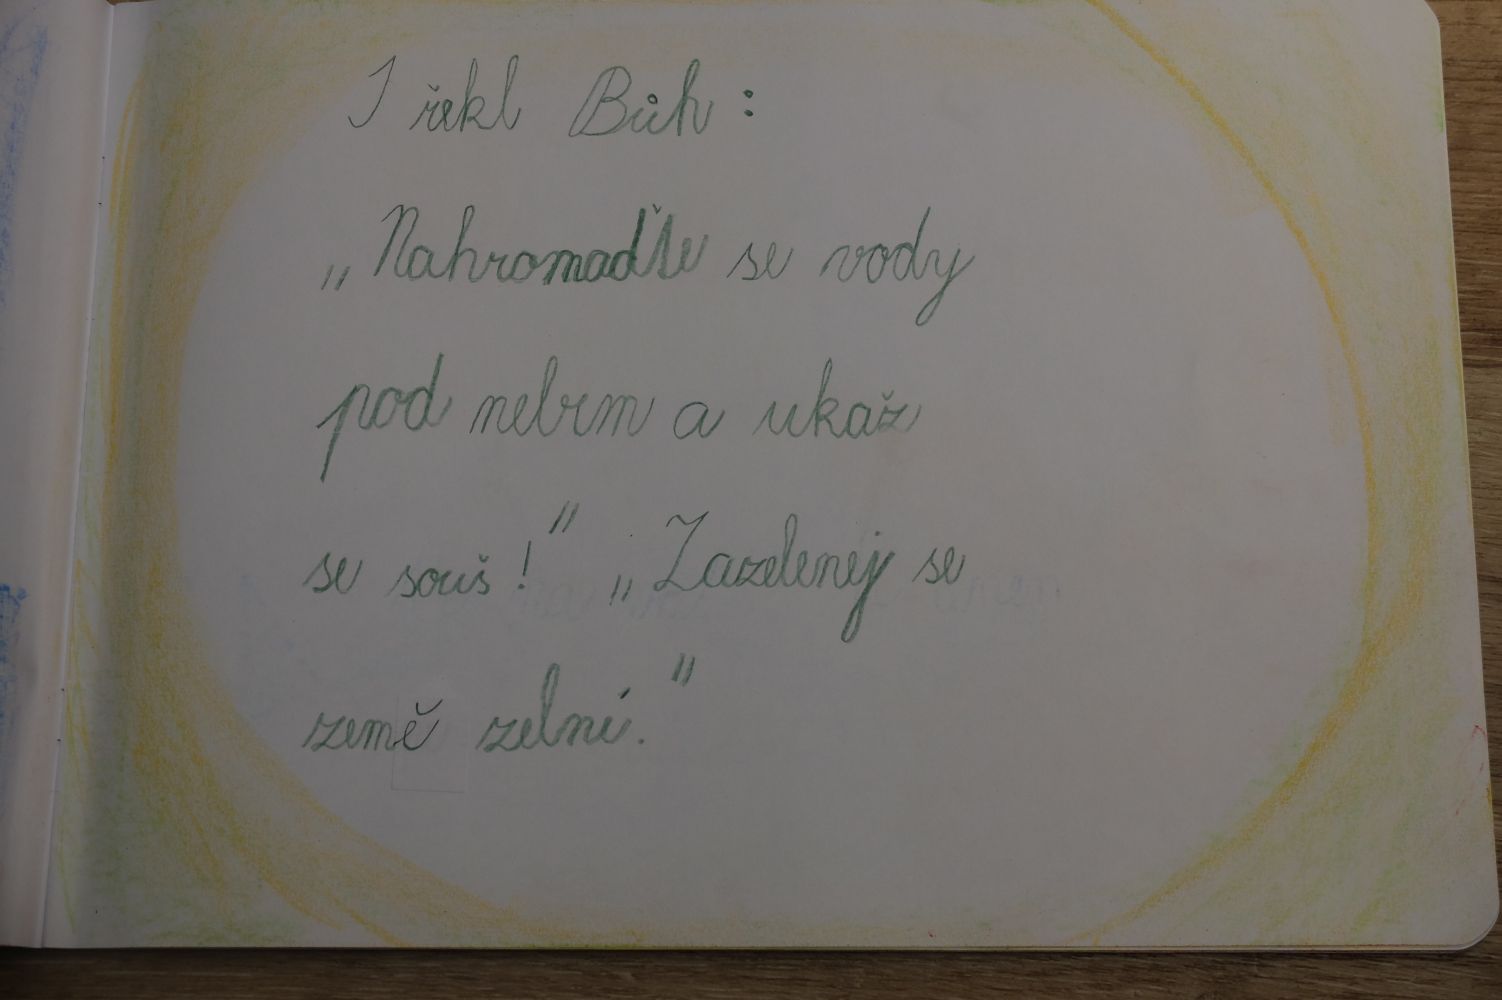 I řekl Bůh:
„Nahromaďte se vody
pod nebem a ukaž
se souš!" „Zazelenej se
země zelní."